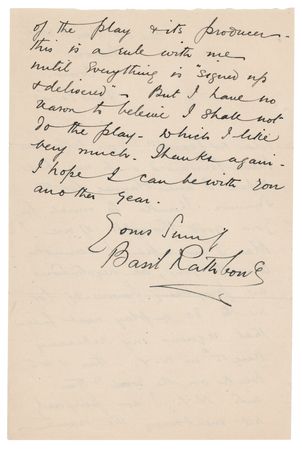 of the play & its producer -
this is a rule with me
until everything is "signed up
& delivered" - But I have no
reason to believe I shall not
do the play - which I like
very much. Thanks again -
I hope I can be with you
another year.
Yours
Basil Rathbone